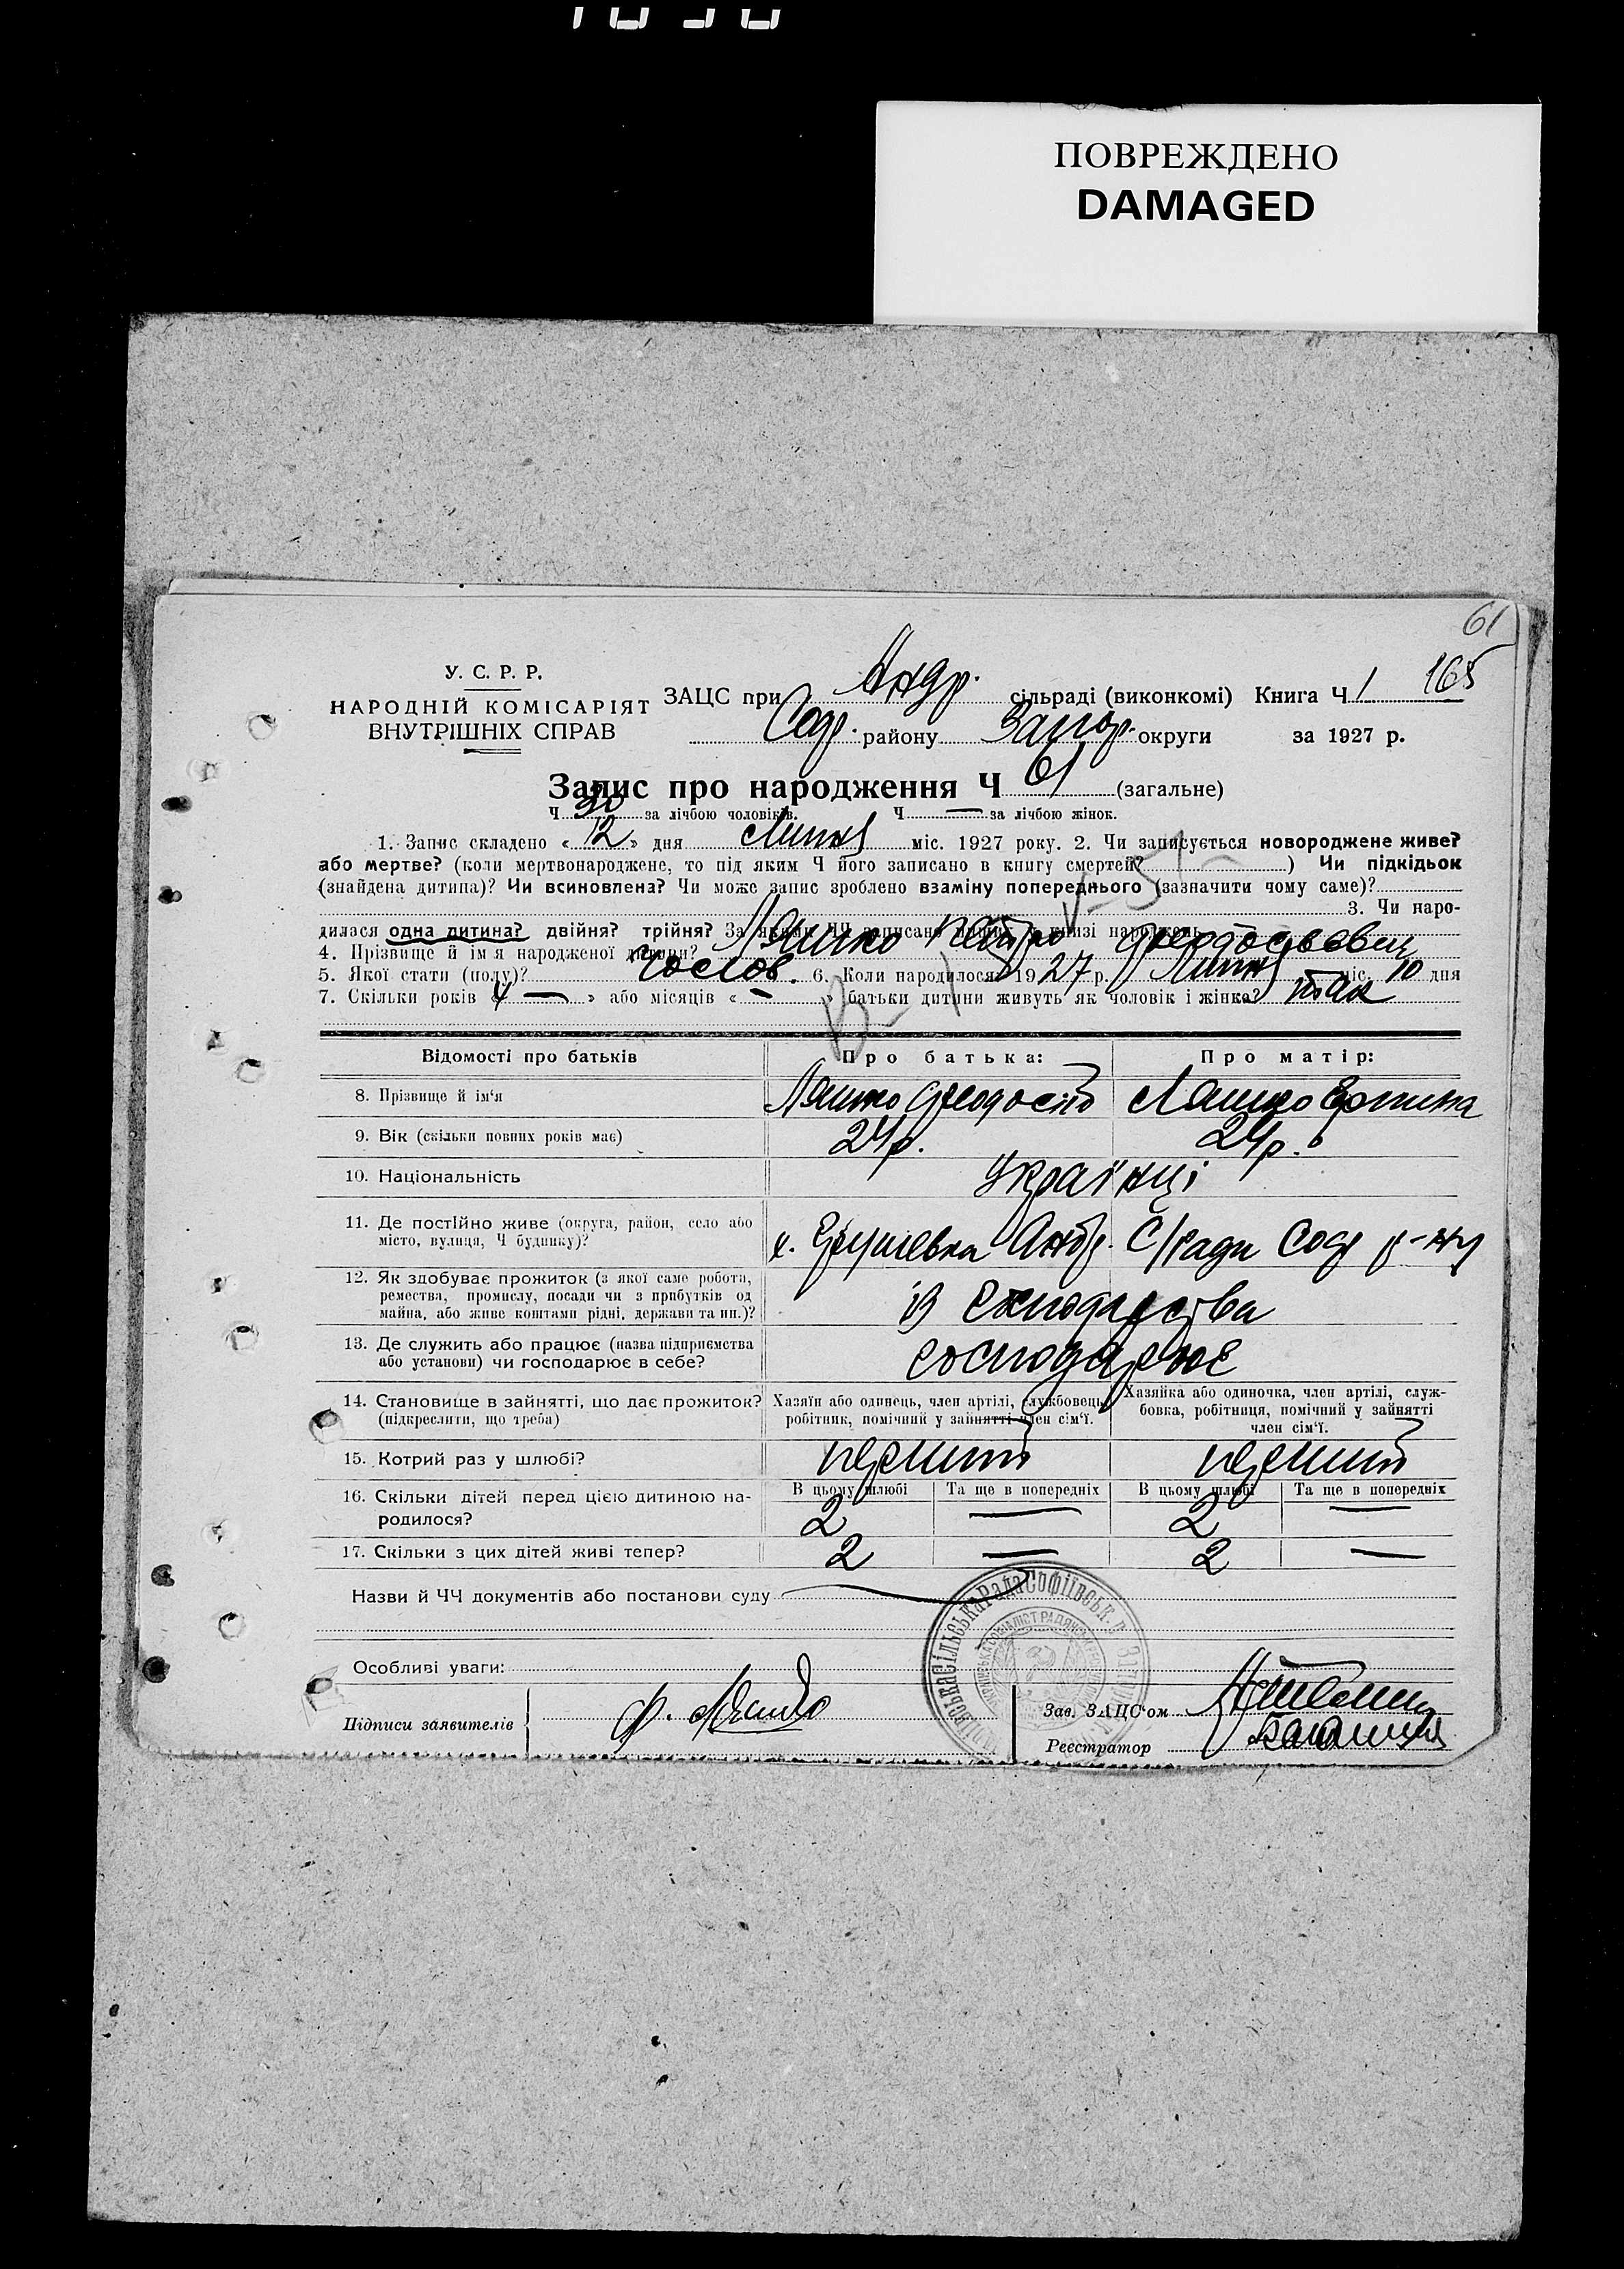 ПОВРЕЖДЕНО
DAMAGED
61
165
У. С. Р. Р.
НАРОДНІЙ КОМІСАРІЯТ
ВНУТРІШНІХ СПРАВ
ЗАЦС при Андр. сільраді (виконкомі) Книга Ч 1
Соф. району Запор. округи за 1927 р.
Запис про народження Ч 61 (загальне)
Ч 30 за лічбою чоловіків. Ч — за лічбою жінок.
1. Запис складено « 12 » дня Липня міс. 1927 року. 2. Чи записується новороджене живе?
або мертве? (коли мертвонароджене, то під яким Ч його записано в книгу смертей? ) Чи підкідьок
(знайдена дитина)? Чи всиновлена? Чи може запис зроблено взаміну попереднього (зазначити чому саме)?
3. Чи наро-
дилася одна дитина? двійня? трійня? За якими ЧЧ записано інших у книзі народжень
4. Прізвище й ім'я народженої дитини? Ляшко Петро Феодосьевич
5. Якої стати (полу)? чолов. 6. Коли народилося? 1927 р. Липня міс. 10 дня
7. Скільки років « — » або місяців « — » батьки дитини живуть як чоловік і жінка? так
Відомості про батьків Про батька: Про матір:
8. Прізвище й ім'я Ляшко Феодосій Ляшко
9. Вік (скільки повних років має) 24 р. 24 р.
10. Національність Українці
11. Де постійно живе (округа, район, село або
місто, вулиця, Ч будинку)? Андр. С/ради Соф р-ну
12. Як здобуває прожиток (з якої саме роботи,
ремества, промислу, посади чи з прибутків од
майна, або живе коштами рідні, держави та ин.)? із господарства
13. Де служить або працює (назва підприємства
або установи) чи господарює в себе? господарює
14. Становище в зайнятті, що дає прожиток?
(підкреслити, що треба)
Хазяїн або одинець, член артілі, службовець,
робітник, помічний у зайнятті член сім'ї.
Хазяйка або одиночка, член артілі, служ-
бовка, робітниця, помічний у зайнятті
член сім'ї.
15. Котрий раз у шлюбі? перший перший
16. Скільки дітей перед цією дитиною на-
родилося?
В цьому шлюбі Та ще в попередніх В цьому шлюбі Та ще в попередніх
2 — 2 —
17. Скільки з цих дітей живі тепер? 2 — 2 —
Назви й ЧЧ документів або постанови суду
Особливі уваги:
Підписи заявителів Ф. Ляшко
Зав. ЗАЦС'ом
Реєстратор